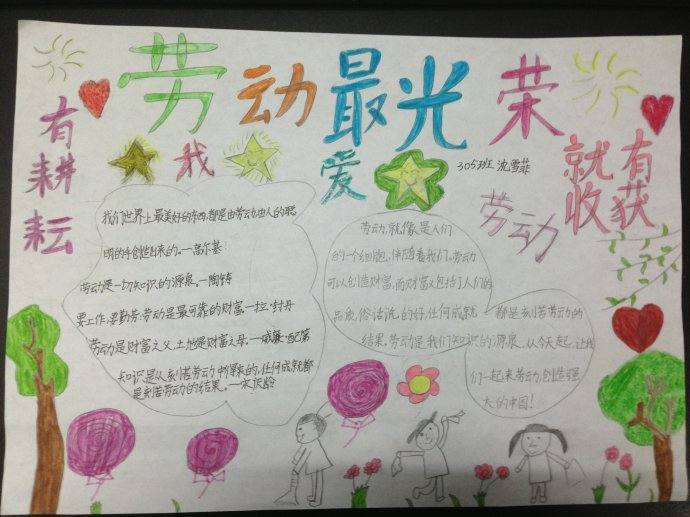 劳动最光荣
有耕耘
我爱劳动
就有收获
305班 沈雪菲
我们世界上最美好的东西,都是由劳动由人的聪
明的手创造出来的。一高尔基
劳动是一切知识的源泉。一陶铸
要工作,要勤劳:劳动是最可靠的财富一拉·封丹
劳动是财富之父,土地是财富之母。一威廉·配第
知识是从刻苦劳动中得来的,任何成就都
是刻苦劳动的结果。一宋庆龄
劳动,就像是人们
的一个细胞,伴随着我们。劳动
可以创造财富,而财富又包括了人们的
品质,俗话说的好,任何成就
都是刻苦劳动的
结果。劳动是我们知识的源泉,从今天起,让我
们一起来劳动,创造强
大的中国!